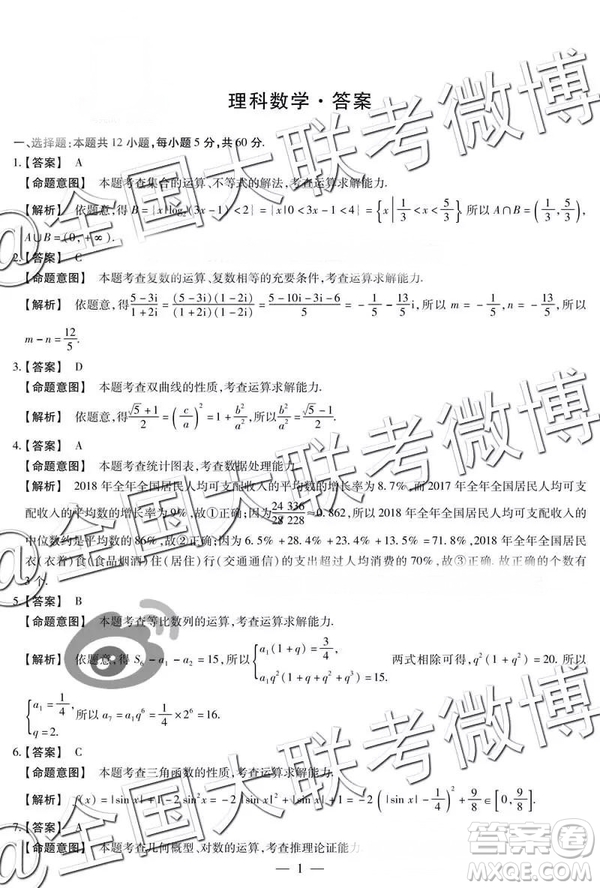 理科数学·答案
一、选择题:本题共12小题,每小题5分,共60分.
1.【答案】 A
【命题意图】 本题考查集合的运算、不等式的解法,考查运算求解能力.
【解析】 依题意,得B={x|log₂(3x-1)<2}={x|0<3x-1<4}={x|1/3<x<5/3},所以A∩B=(1/3,5/3),
A∪B=(0,+∞).
2.【答案】 C
【命题意图】 本题考查复数的运算、复数相等的充要条件,考查运算求解能力.
【解析】 依题意,得(5-3i)/(1+2i)=(5-3i)(1-2i)/(1+2i)(1-2i)=(5-10i-3i-6)/5=-1/5-13/5i,所以m=-1/5,n=-13/5,所以
m-n=12/5.
3.【答案】 D
【命题意图】 本题考查双曲线的性质,考查运算求解能力.
【解析】 依题意,得(√5+1)/2=(c/a)²=1+b²/a²,所以b²/a²=(√5-1)/2.
4.【答案】 A
【命题意图】 本题考查统计图表,考查数据处理能力.
【解析】 2018年全年全国居民人均可支配收入的平均数的增长率为8.7%,而2017年全年全国居民人均可支
配收入的平均数的增长率为9%,故①正确;因为24 336/28 228≈0.862,所以2018年全年全国居民人均可支配收入的
中位数约是平均数的86%,故②正确;因为6.5%+28.4%+23.4%+13.5%=71.8%,所以2018年全年全国居民
衣(衣着)食(食品烟酒)住(居住)行(交通通信)的支出超过人均消费的70%,故③正确.故正确的个数有
3个.
5.【答案】 B
【命题意图】 本题考查等比数列的运算,考查运算求解能力.
【解析】 依题意,得S₆-a₁-a₂=15,所以{a₁(1+q)=3/4, a₁q²(1+q+q²+q³)=15, 两式相除可得,q²(1+q²)=20.所以
{a₁=1/4, q=2. 所以a₇=a₁q⁶=1/4×2⁶=16.
6.【答案】 C
【命题意图】 本题考查三角函数的性质,考查运算求解能力.
【解析】 f(x)=|sin x|+1-2sin²x=-2|sin x|²+|sin x|+1=-2(|sin x|-1/4)²+9/8∈[0,9/8].
7.【答案】 A
【命题意图】 本题考查几何概型、对数的运算,考查推理论证能力.
— 1 —
@全国大联考微博
@全国大联考微博
@全国大联考微博
答案圈
MXQE.COM